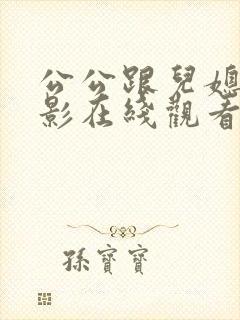 公公跟兒媳
影在綫觀看
孫寶寶